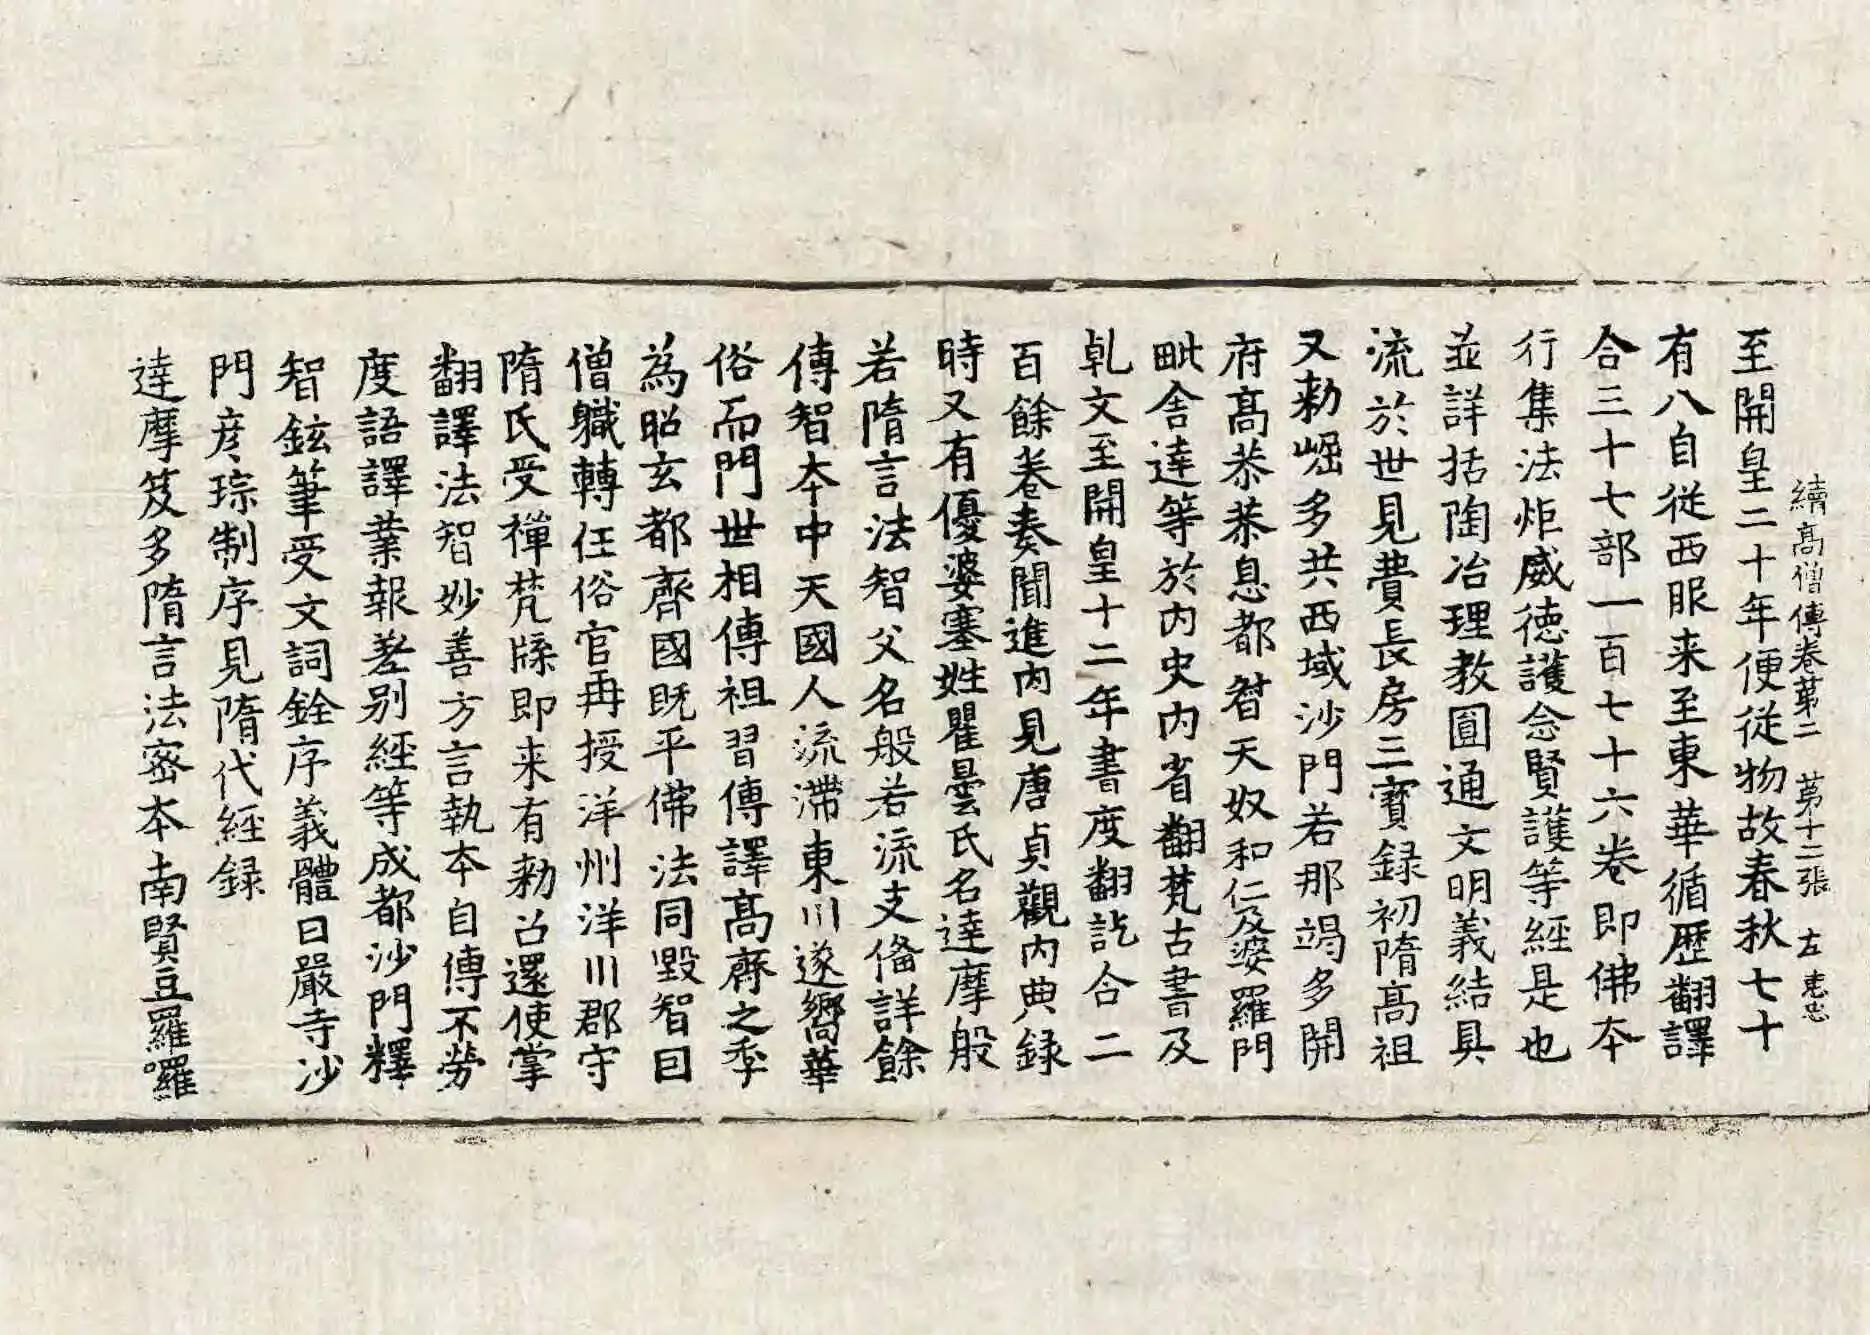 續高僧傳卷苐二 苐十二張 左
至開皇二十年便從物故春秋七十
有八自從西服来至東華循歷翻譯
合三十七部一百七十六卷即佛本
行集法炬威德護念賢護等經是也
並詳括陶冶理教圓通文明義結具
流於世見費長房三寳録初隋髙祖
又勑崛多共西域沙門若那竭多開
府髙恭恭息都督天奴和仁及婆羅門
毗舍達等於内史内省翻梵古書及
乹文至開皇十二年書度翻訖合二
百餘卷奏聞進内見唐貞觀内典録
時又有優婆塞姓瞿曇氏名達摩般
若隋言法智父名般若流支俻詳餘
傳智夲中天國人流滯東川遂嚮華
俗而門世相傳祖習傳譯髙齊之季
為昭玄都齊國既平佛法同毀智因
僧職轉任俗官再授洋州洋川郡守
隋氏受禪梵牒即来有勑召還使掌
翻譯法智妙善方言執本自傳不勞
度語譯業報差别經等成都沙門釋
智鉉筆受文詞銓序義體日嚴寺沙
門彦琮制序見隋代經録
達摩笈多隋言法密本南賢豆羅囉